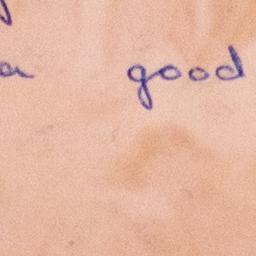 a good